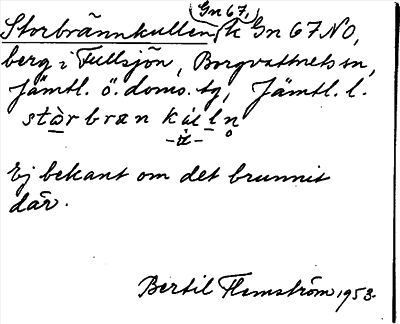 Gn 67,
Storbrännkullen, k Gn 67 NO,
berg i Fullsjön, Borgvattnets sn,
Jämtl. ö. doms. tg, Jämtl. l.
Ej bekant om det brunnit
där.
Bertil Flemström 1953.